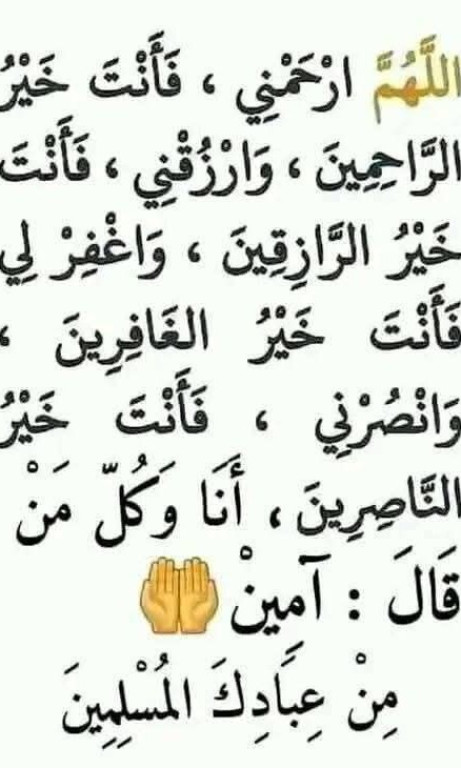 اللَّهُمَّ ارْحَمْنِي ، فَأَنْتَ خَيْرُ
الرَّاحِمِينَ ، وَارْزُقْنِي ، فَأَنْتَ
خَيْرُ الرَّازِقِينَ ، وَاغْفِرْ لِي
فَأَنْتَ خَيْرُ الغَافِرِينَ ،
وَانْصُرْنِي ، فَأَنْتَ خَيْرُ
النَّاصِرِينَ ، أَنَا وَكُلّ مَنْ
قَالَ : آمِينْ 🤲
مِنْ عِبَادِكَ المُسْلِمِينَ